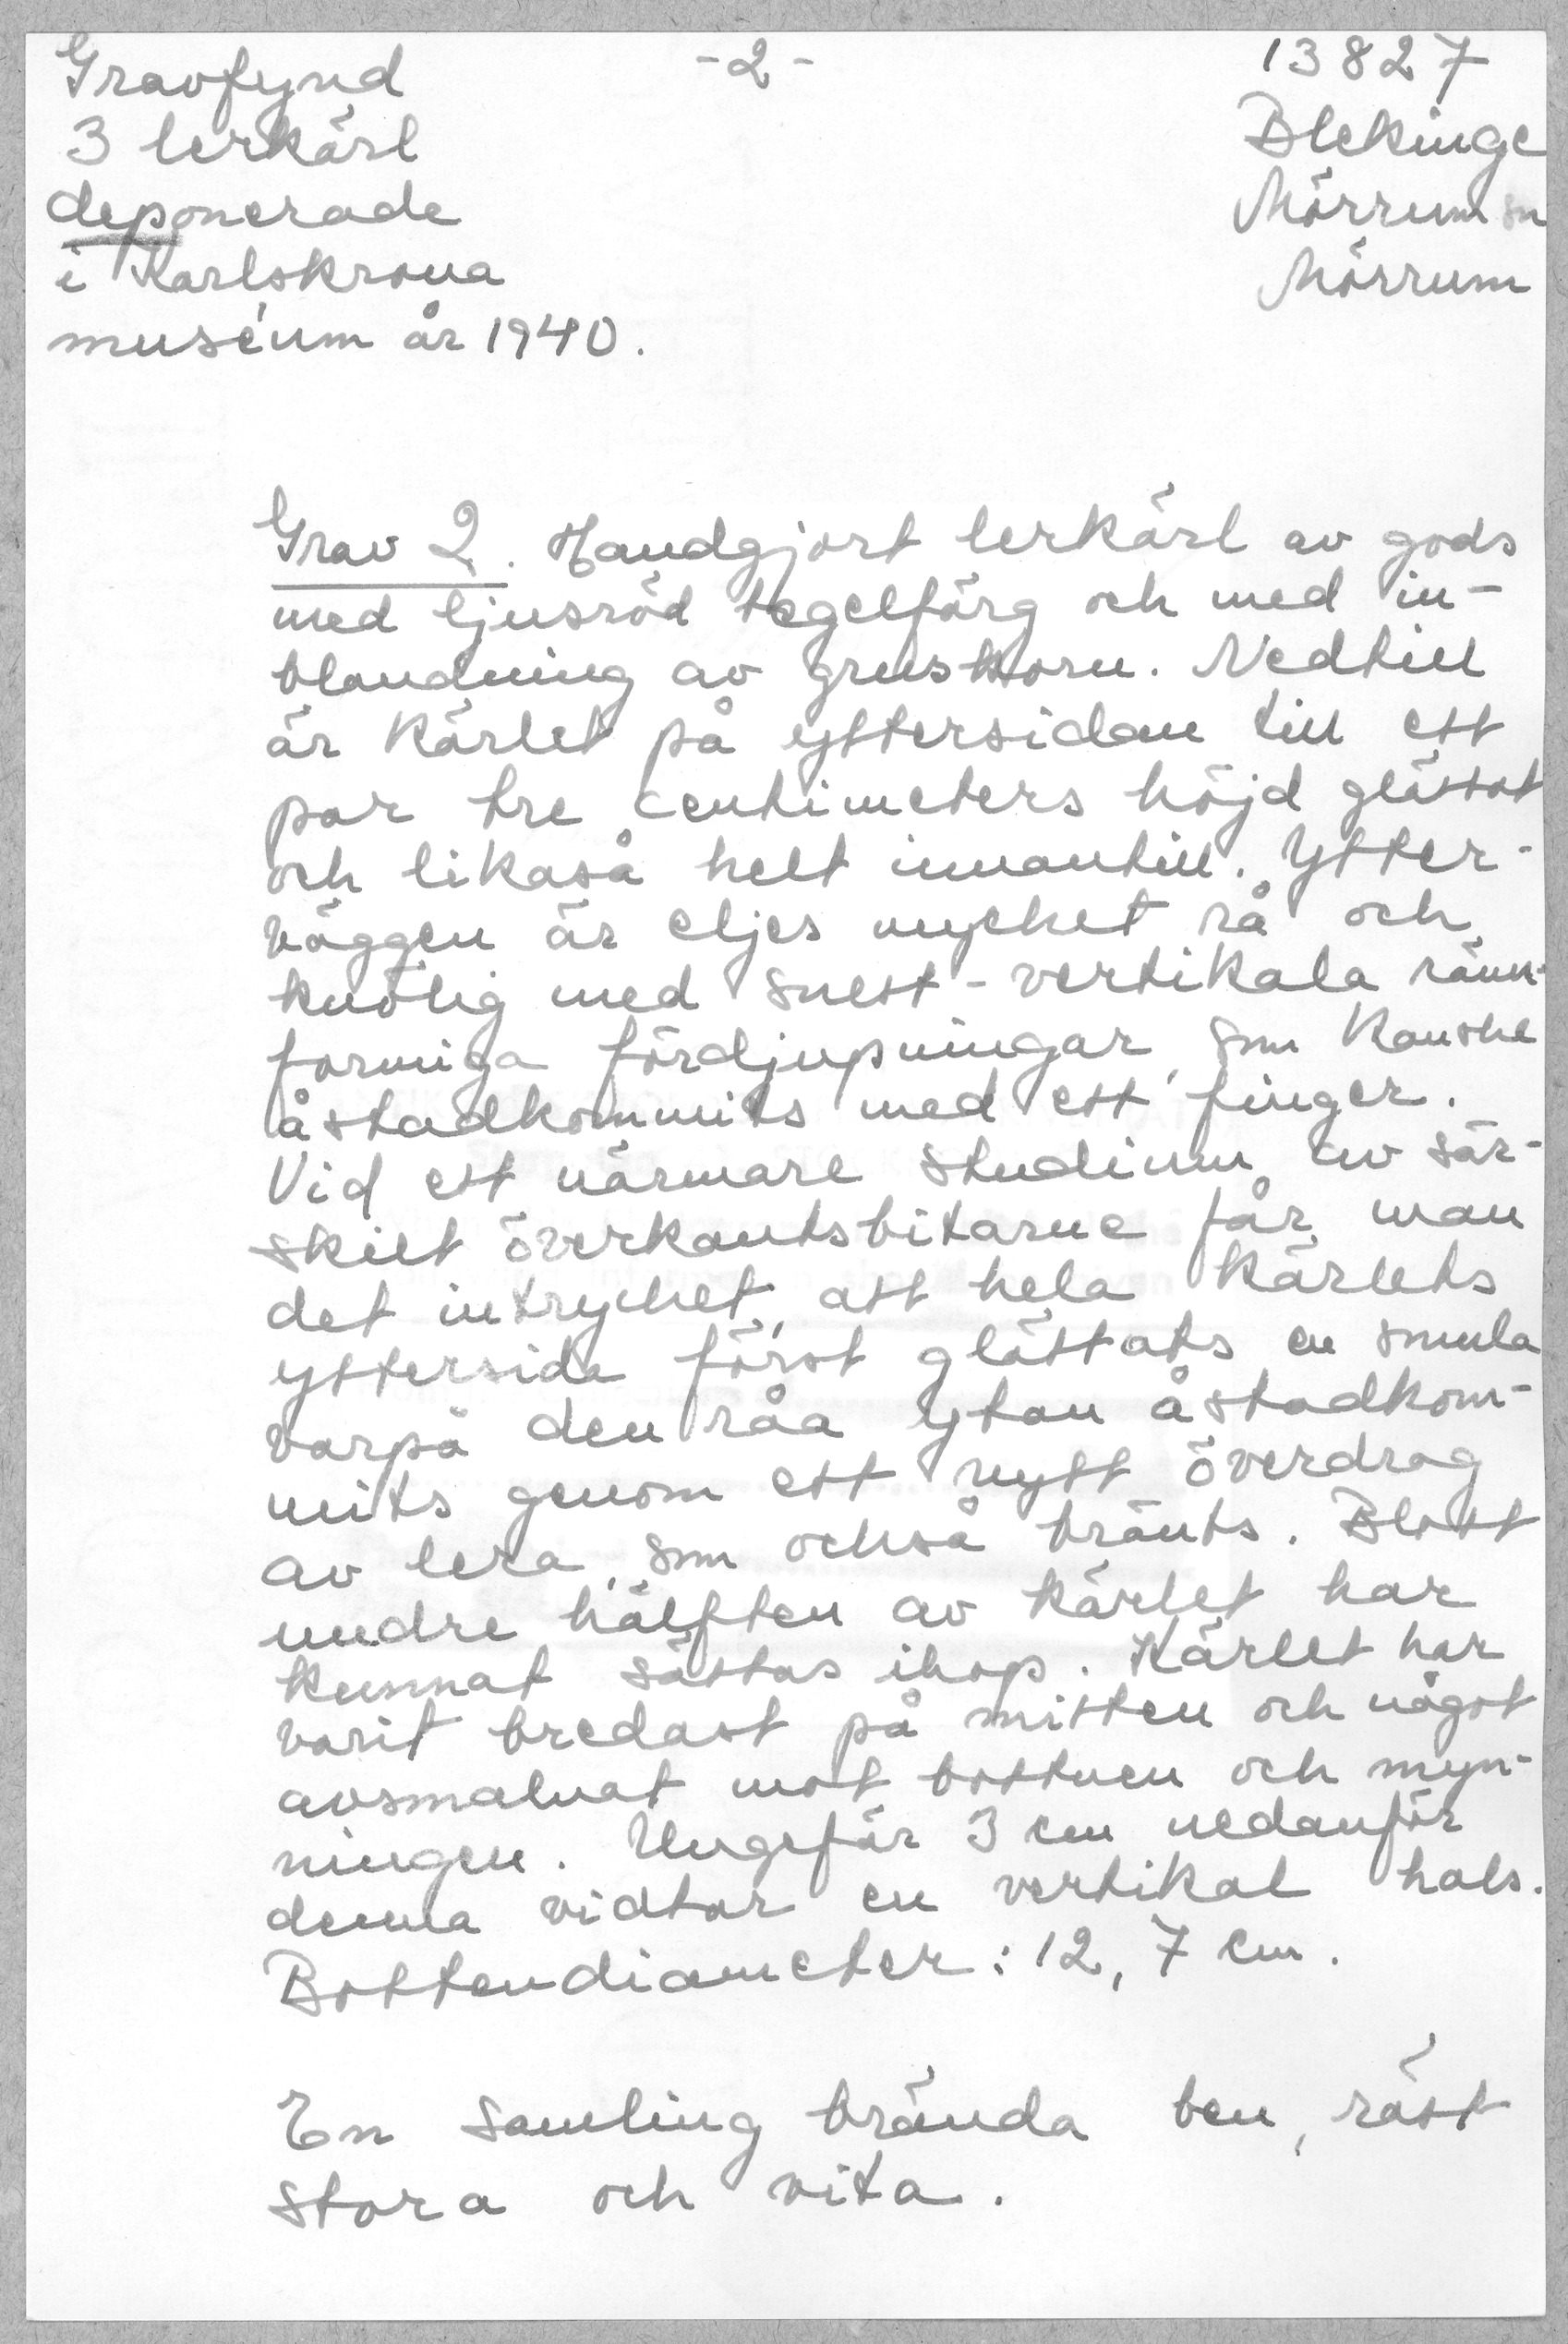 Gravfynd
3 lerkärl
deponerade
i Karlskrona
muséum år 1940.
-2-
13827
Blekinge
Mörrum sn
Mörrum
Grav 2. Handgjort lerkärl av gods
med ljusröd tegelfärg och med in-
blandning av gruskorn. Nedtill
är kärlet på yttersidan till ett
par tre centimeters höjd glättat
och likaså helt innantill. Ytter-
väggen är eljes mycket rå och
knölig med snest-vertikala ränn-
formiga fördjupningar, som kanske
åstadkommits med ett finger.
Vid ett närmare studium av sär-
skilt överkantsbitarne får man
det intrycket, att hela kärlets
yttersida först glättats en smula
varpå den råa ytan åstadkom-
mits genom ett nytt överdrag
av lera, som också bränts. Blott
undre hälften av kärlet har
kunnat sättas ihop. Kärlet har
varit bredast på mitten och något
avsmalnat mot bottnen och myn-
ningen. Ungefär 3 cm nedanför
denna vidtar en vertikal hals.
Bottendiameter: 12,7 cm.
En samling brända ben, rätt
stora och vita.